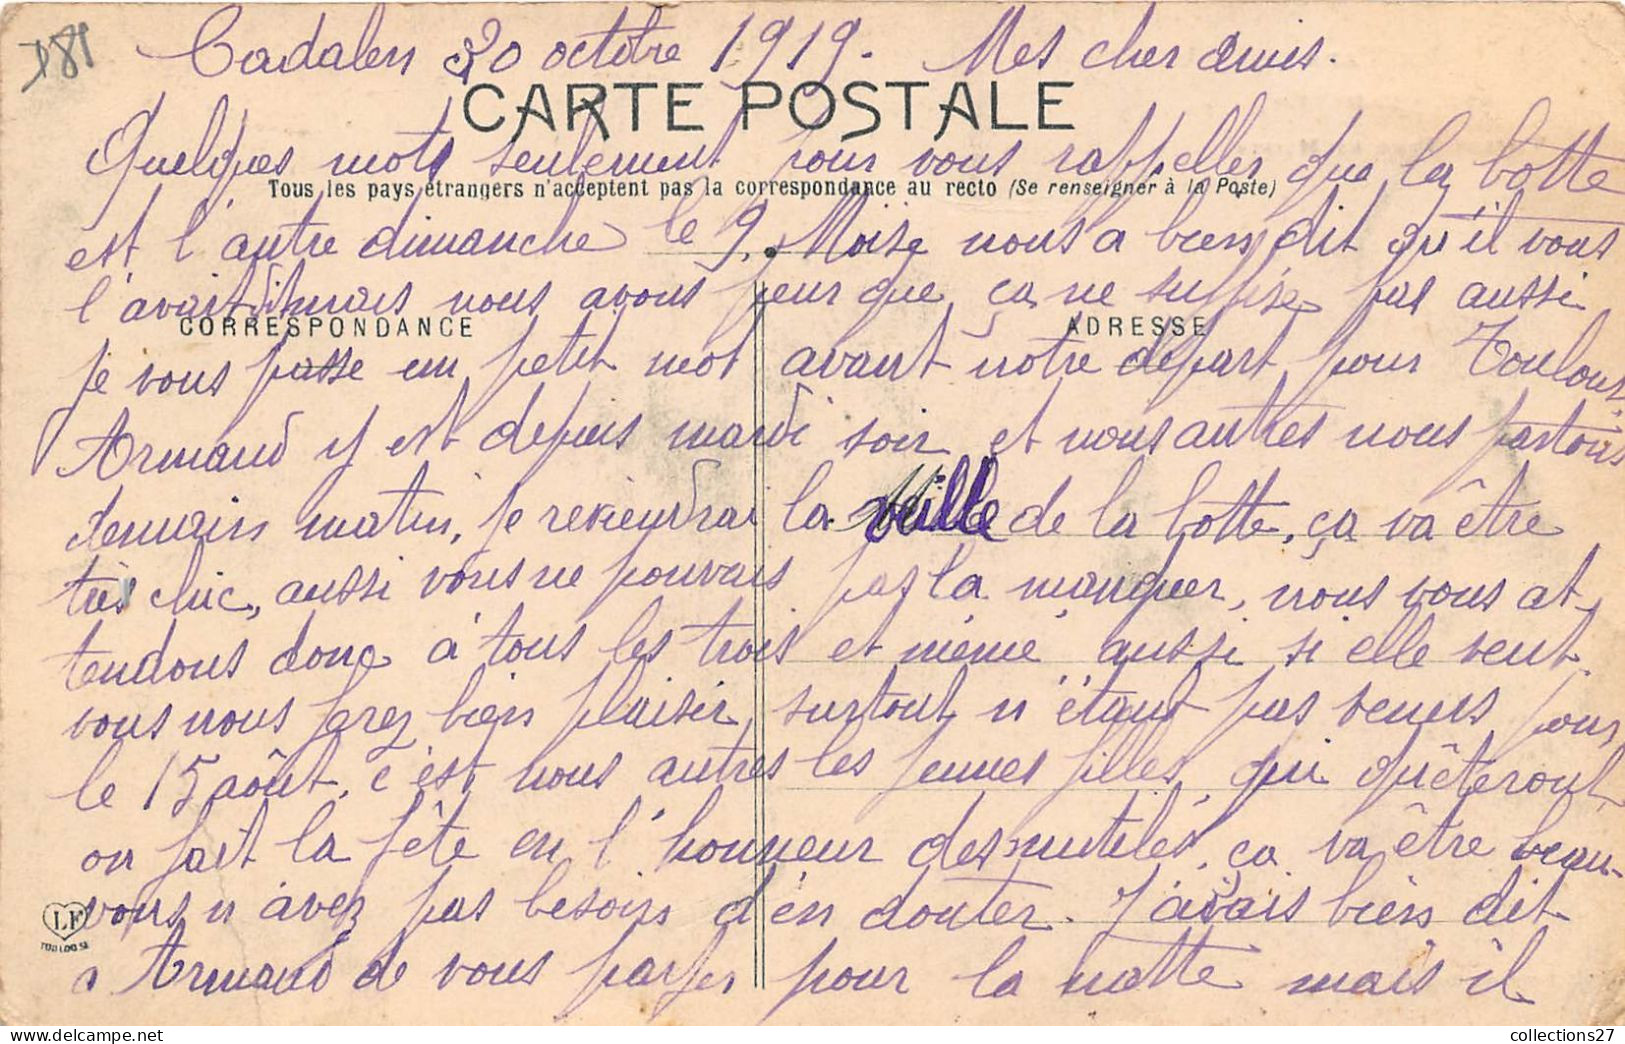 D81
Cadalen 30 octobre 1919. Mes cher amis.
CARTE POSTALE
Quelques mots seulement pour vous rappeller que la botte
Tous les pays étrangers n'acceptent pas la correspondance au recto (Se renseigner à la Poste)
est l'autre dimanche le 9. Moïse nous a bien dit qu'il vous
l'avait dit mais nous avons peur que ça ne suffise pas aussi
CORRESPONDANCE ADRESSE
je vous passe un petit mot avant notre départ pour Toulouse
Armand y est depuis mardi soir et nous autres nous partons
demain matin, je reviendrai la veille de la botte, ça va être
très chic, aussi vous ne pouvais pas la manquer, nous vous at
tendons donc à tous les trois et mémé aussi si elle veut
vous nous ferez bien plaisir, surtout n'étant pas venus pour
le 15 août, c'est nous autres les jeunes filles qui quêteront
on fait la fête en l'honneur des mutilés, ça va être beau
vous n'avez pas besoin d'en douter. J'avais bien dit
LF
TOULOUSE
a Armand de vous parler pour la natte mais il
collections27